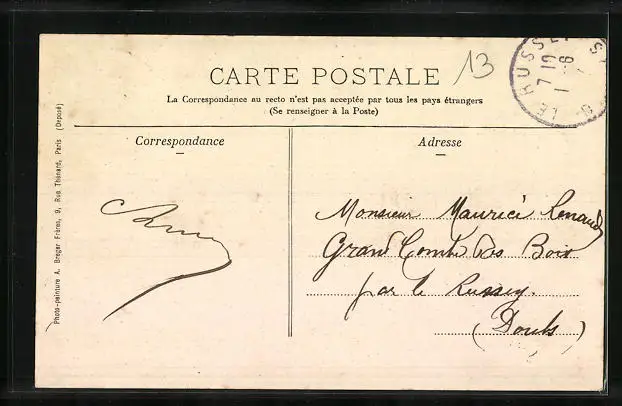 CARTE POSTALE
13
La Correspondance au recto n'est pas acceptée par tous les pays étrangers
(Se renseigner à la Poste)
LE RUSS
7 10
1 -6
Correspondance
Adresse
Monsieur Maurice Renaud
Grand Combe des Bois
par le Russey.
(Doubs)
Photo-peinture A. Breger Frères, 9, Rue Thénard, Paris (Déposé)